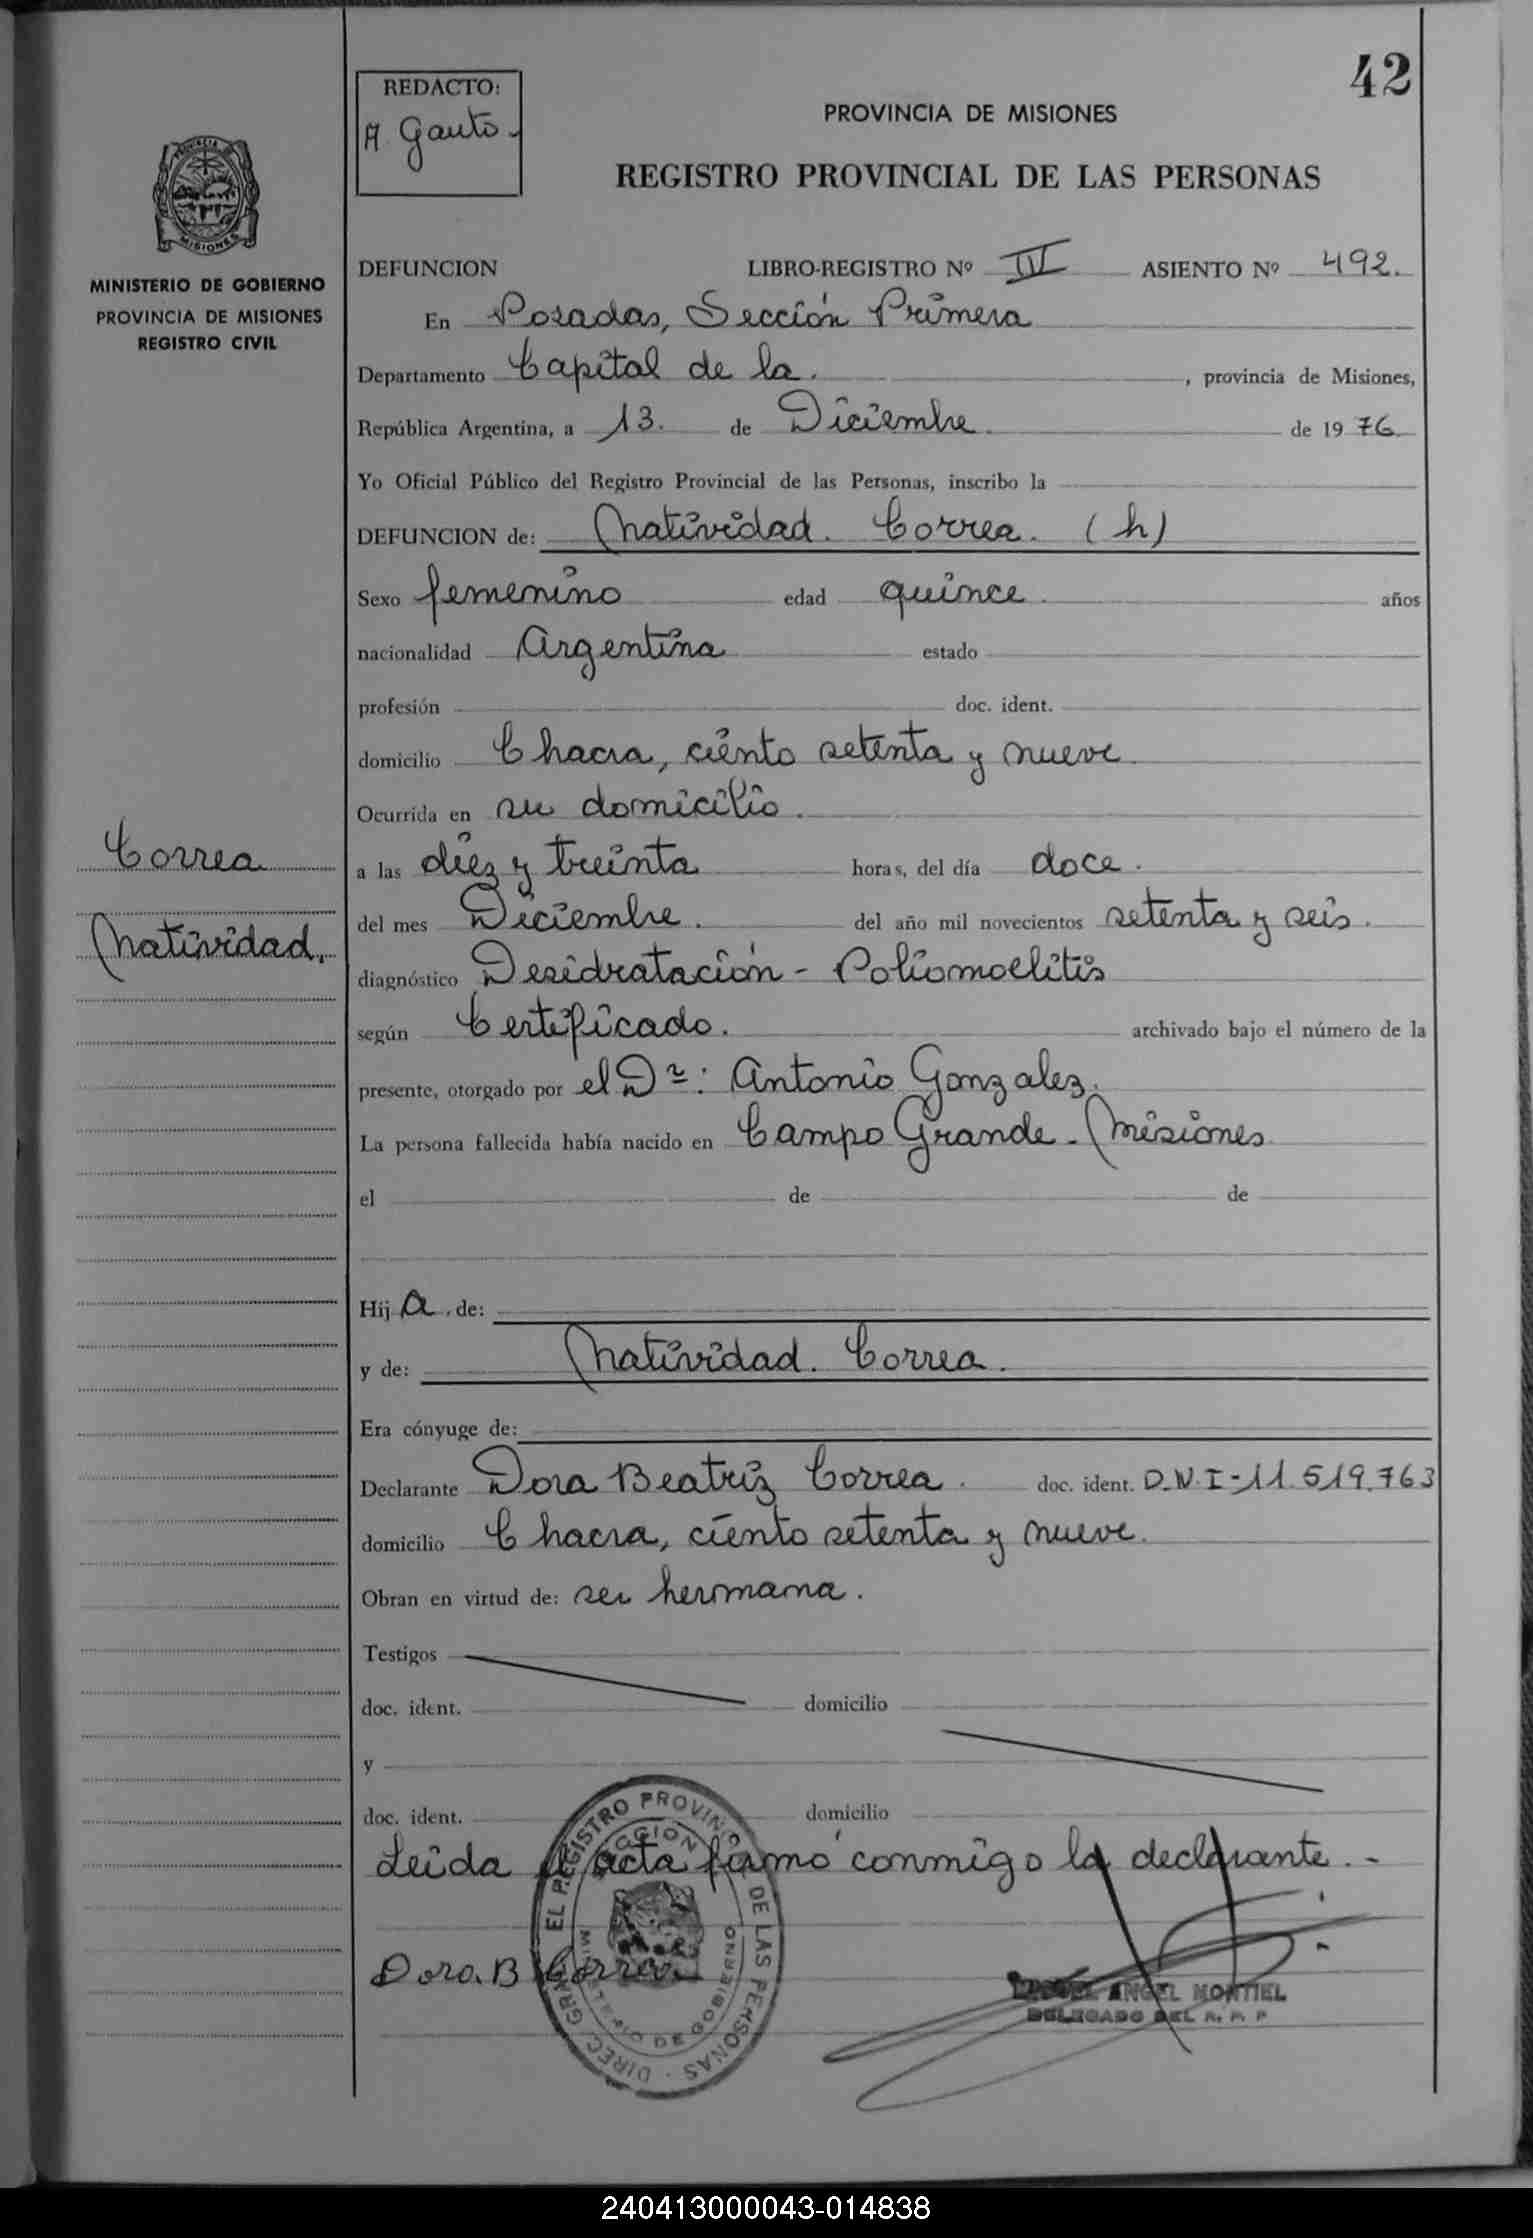 42
REDACTO:
A Gauto
PROVINCIA DE MISIONES
REGISTRO PROVINCIAL DE LAS PERSONAS
MISIONES
MINISTERIO DE GOBIERNO
PROVINCIA DE MISIONES
REGISTRO CIVIL
DEFUNCION LIBRO-REGISTRO Nº IV ASIENTO Nº 492.
En Posadas, Sección Primera
Departamento Capital de la. , provincia de Misiones,
República Argentina, a 13. de Diciembre de 1976
Yo Oficial Público del Registro Provincial de las Personas, inscribo la
DEFUNCION de: Natividad. Correa. (h)
Sexo femenino edad quince años
nacionalidad Argentina estado
profesión doc. ident.
domicilio Chacra, ciento setenta y nueve
Ocurrida en su domicilio.
Correa
a las diez y treinta horas, del día doce.
Natividad.
del mes Diciembre. del año mil novecientos setenta y seis.
diagnóstico Desidratación - Poliomoelitis
según Certificado. archivado bajo el número de la
presente, otorgado por el Dr: Antonio Gonzalez.
La persona fallecida había nacido en Campo Grande - Misiones
el de de
Hija de:
y de: Natividad. Correa.
Era cónyuge de:
Declarante Dora Beatriz Correa. doc. ident. D.N.I-11.519.763
domicilio Chacra, ciento setenta y nueve.
Obran en virtud de: ser hermana.
Testigos
doc. ident. domicilio
y
doc. ident. domicilio
Leida el acta firmó conmigo la declarante. -
Dora. B Correa
DIREC. GRAL. DEL REGISTRO PROVINCIAL DE LAS PERSONAS
MINISTERIO DE GOBIERNO
ANGEL MONTIEL
DELEGADO DEL R. P. P
240413000043-014838